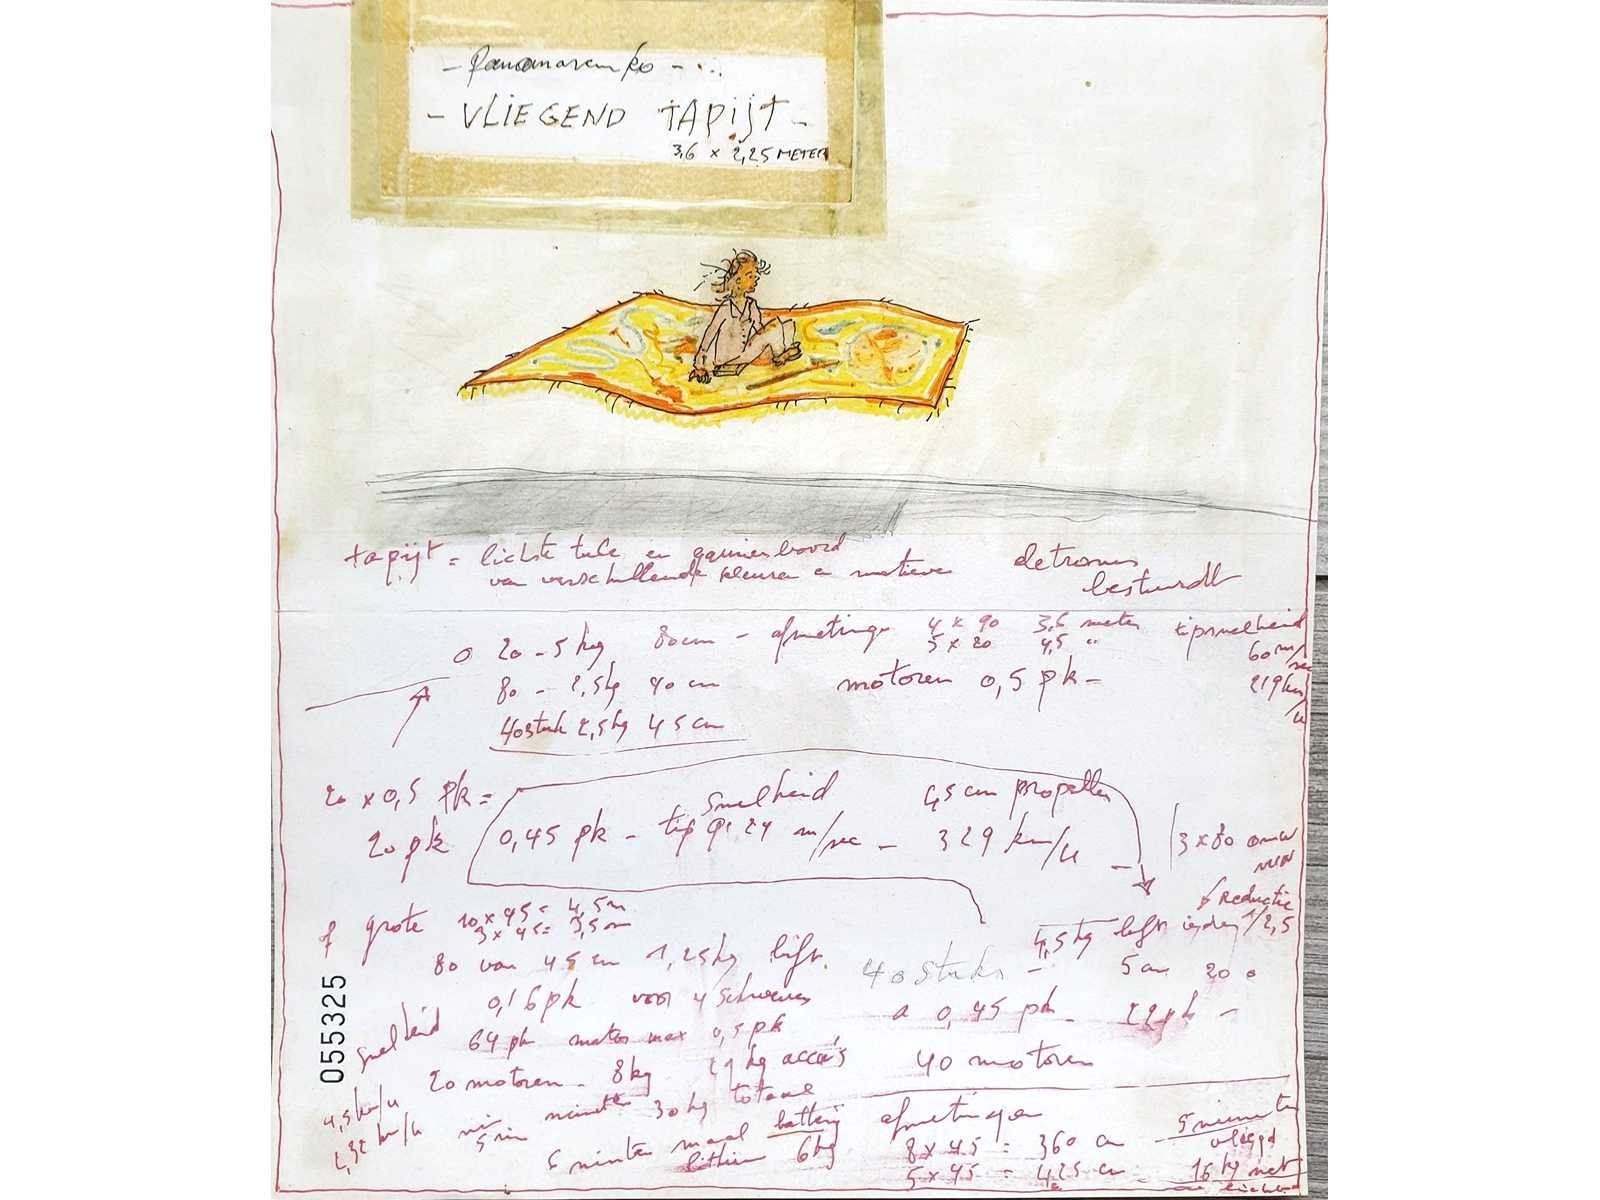 - Panamarenko -
- VLIEGEND TAPIJT -
3,6 x 2,25 METER
tapijt = lichste tule en
van verschillende kleuren motieven
bestuurdt
20 - 5 kg 80cm - afmetinge 4 x 90 3,6 meter tipsnelheid
5 x 20 4,5 " 60 m/sec
80 - 2,5kg 40 cm motoren 0,5 pk - 219 km/u
40 stuk 2,5kg 45 cm
20 x 0,5 pk = snelheid 45 cm propeller
20 pk 0,45 pk - tip 91.24 m/sec - 329 km/u - 3 x 80
reductie
of grote 10 x 45 = 4,5m 1/2,5
3 x 45 = 3,5m 4,5 kg lift
80 van 45 cm 1,25kg lift. 40 stuks - 5 cm 20
0,16 pk voor 4 schroeven a 0,45 pk - 22 pk -
snelheid 64 pk motor max 0,5 pk
20 motoren - 8kg 29 kg accu's 40 motoren
4,5 km/u minuten 30 kg totaal
2,32 km/u 5 min
5 minuten maal battery afmetingen 5 minuten
lithium 6 kg 8 x 45 = 360 cm vliegd
5 x 45 = 425 cm 16 kg met
055325